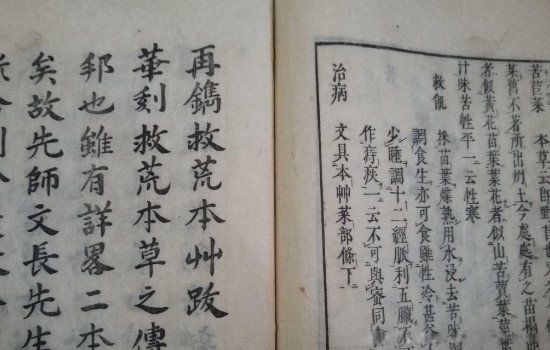 苦苣菜 本草云即野苣也
菜舊不著所出州土今處處有之苗搨
者似黃花苗葉葉花者似山苦蕒葉莖
汁味苦性平一云性寒
救飢 採苗葉煠熟用水浸去苦味淘
調食生亦可食雖性冷甚益
少睡調十二經脉利五臟不
作痔疾一云不可與蜜同
治病 文具本艸菜部條下
再鐫救荒本艸跋
華刻救荒本草之傳
邦也雖有詳畧二本
矣故先師文長先生